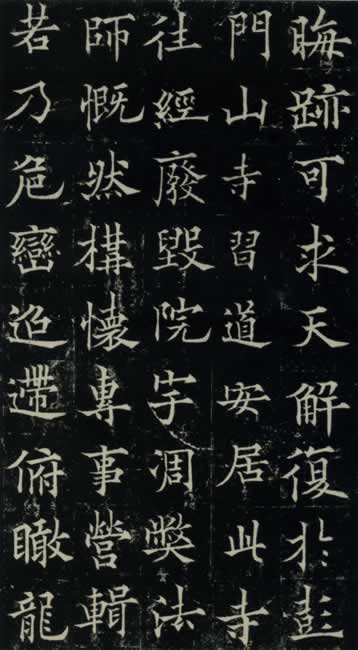 晦跡可求天解復於彭
門山寺習道安居此寺
往經廢毀院宇凋弊法
師慨然構懷專事營輯
若乃危巒迢遰俯瞰龍